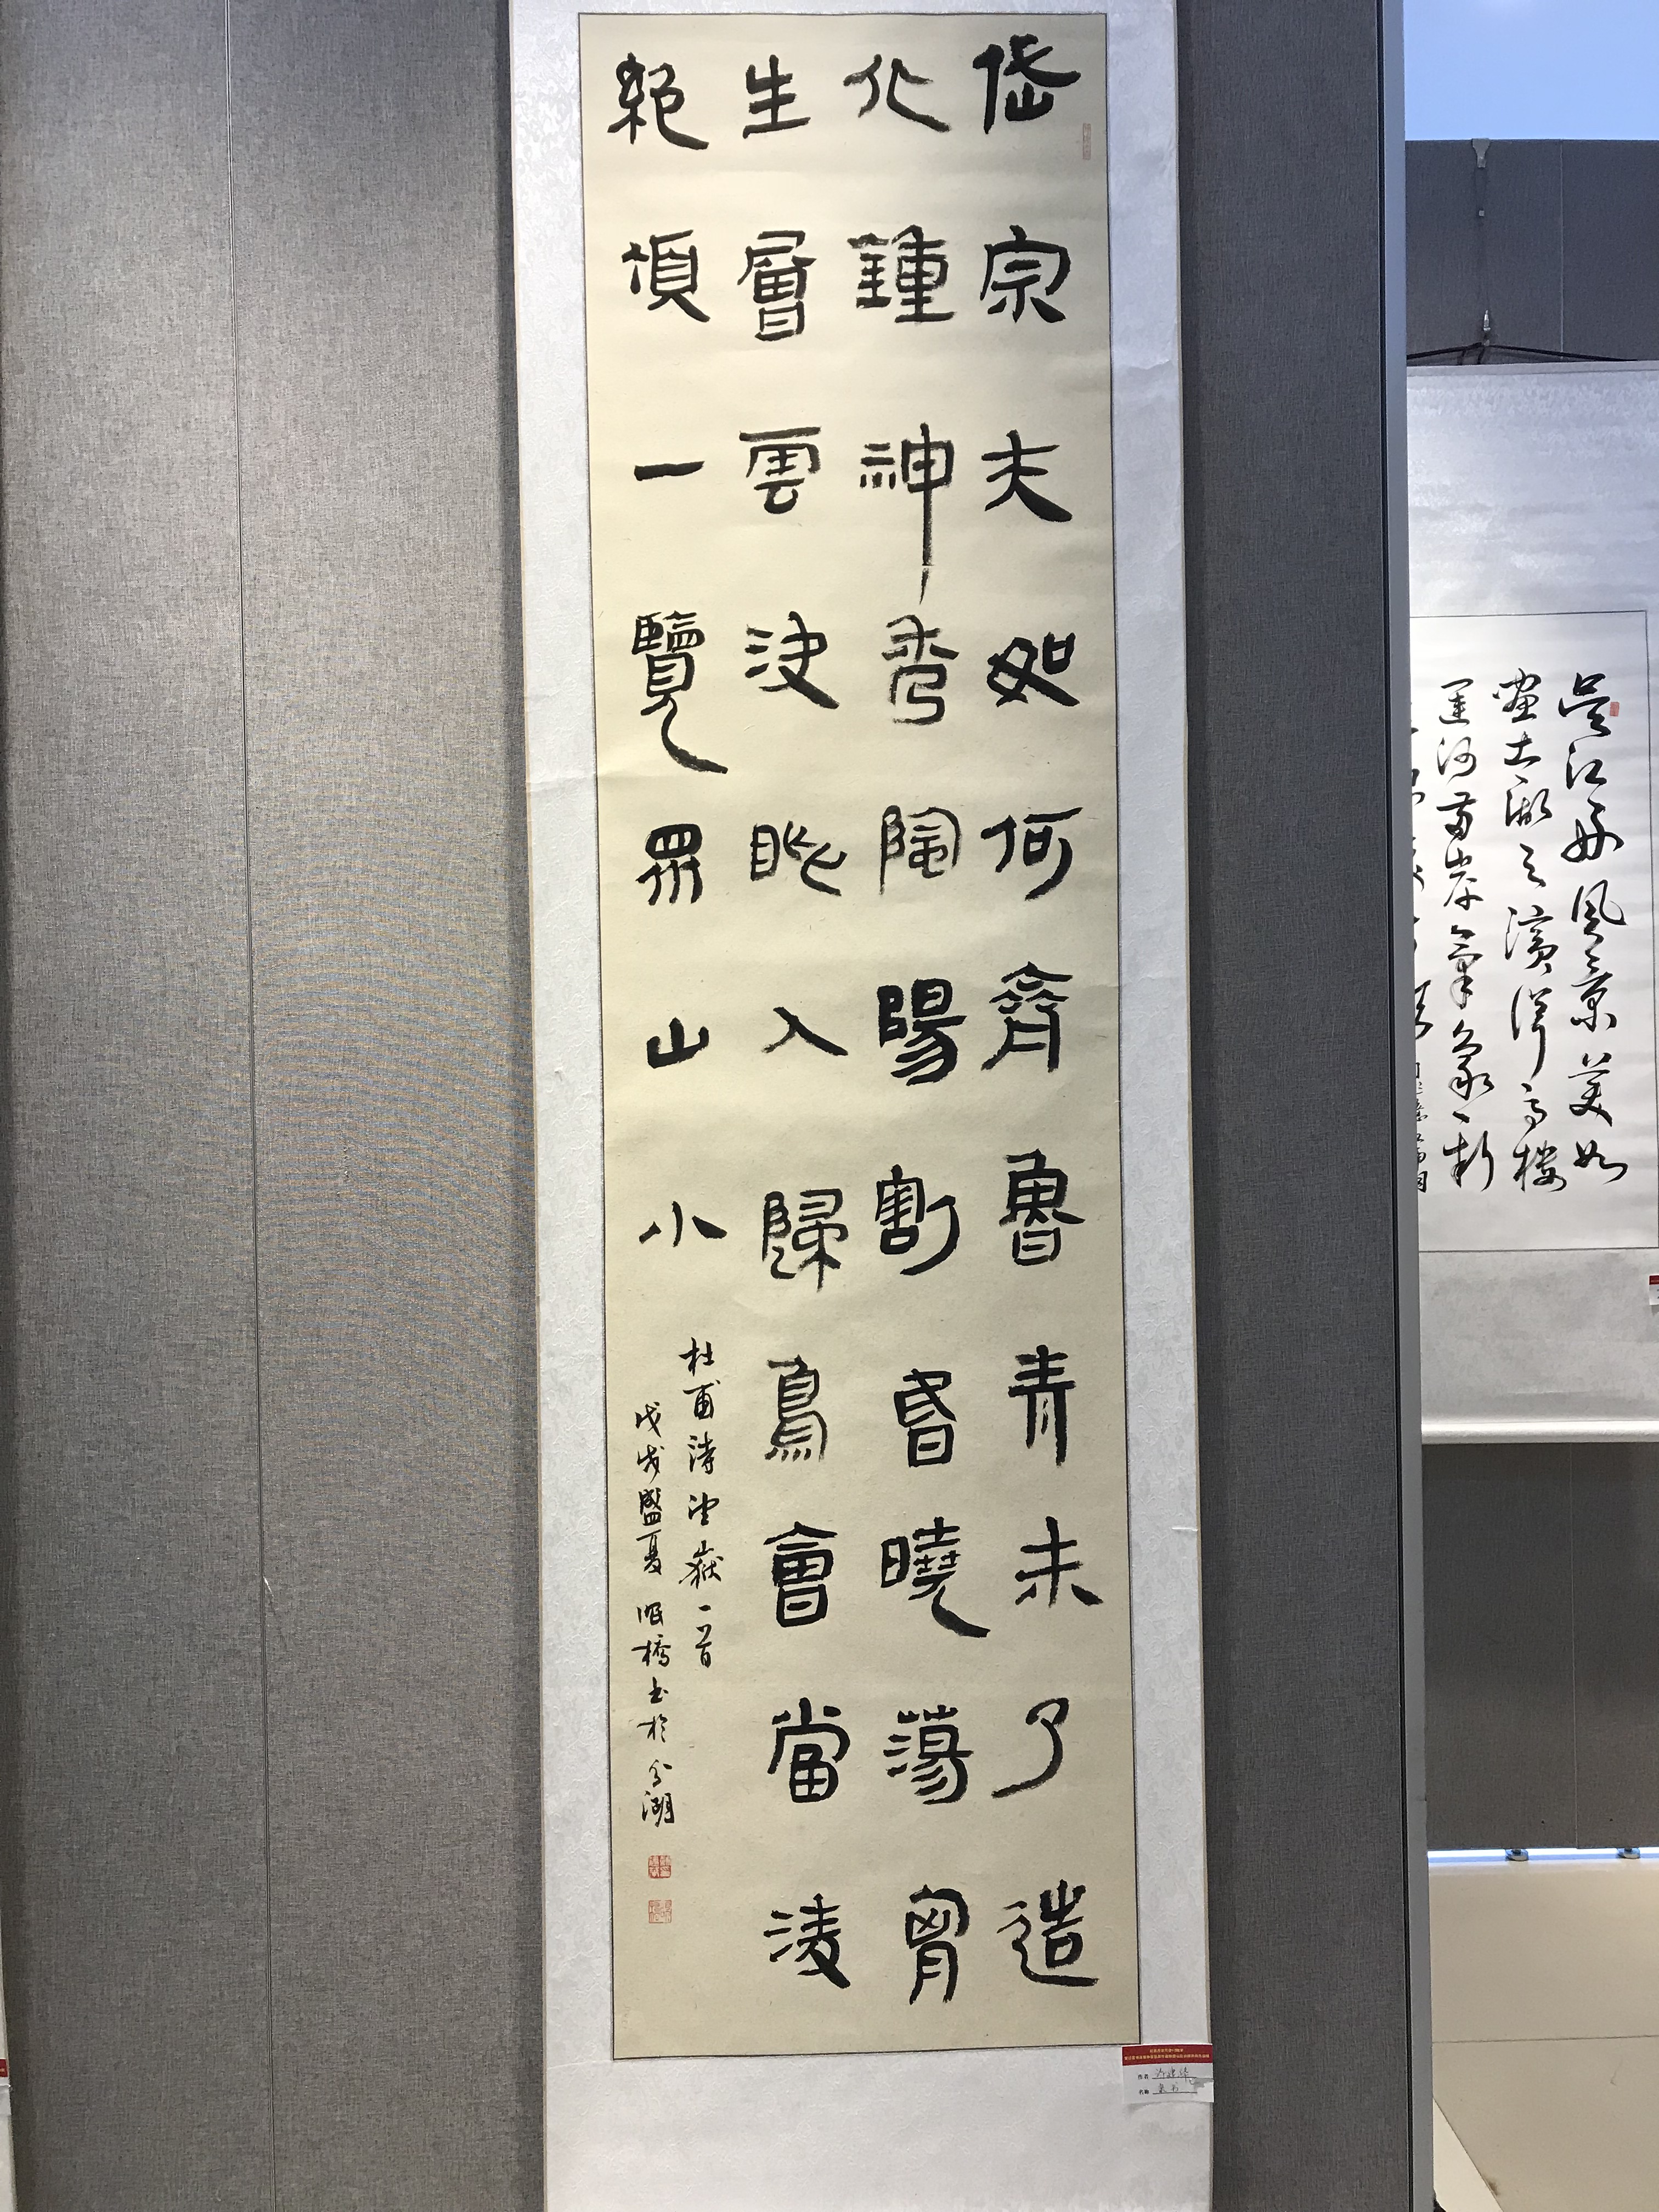 岱宗夫如何齊魯青未了造
化鍾神秀陰陽割昏曉蕩胷
生層雲决眦入歸鳥會當淩
絕頂一覽眾山小
杜甫詩望嶽一首
戊戌盛夏垠橋書於分湖
吳江好風景美如
畫太湖之濱浮高樓
運河兩岸氣象新
作者
名称 隶书